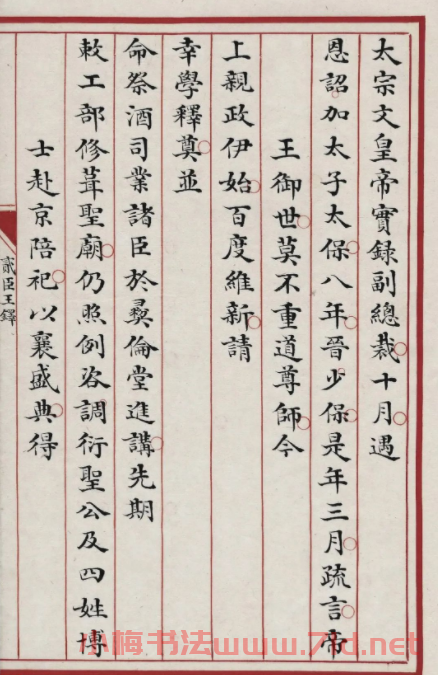 太宗文皇帝實錄副總裁十月遇
恩詔加太子太保八年晉少保是年三月疏言帝
王御世莫不重道尊師今
上親政伊始百度維新請
幸學釋奠並
命祭酒司業諸臣於彜倫堂進講先期
敕工部修葺聖廟仍照例咨調衍聖公及四姓博
士赴京陪祀以襄盛典得
貳臣王鐸
小梅书法www.7d.net